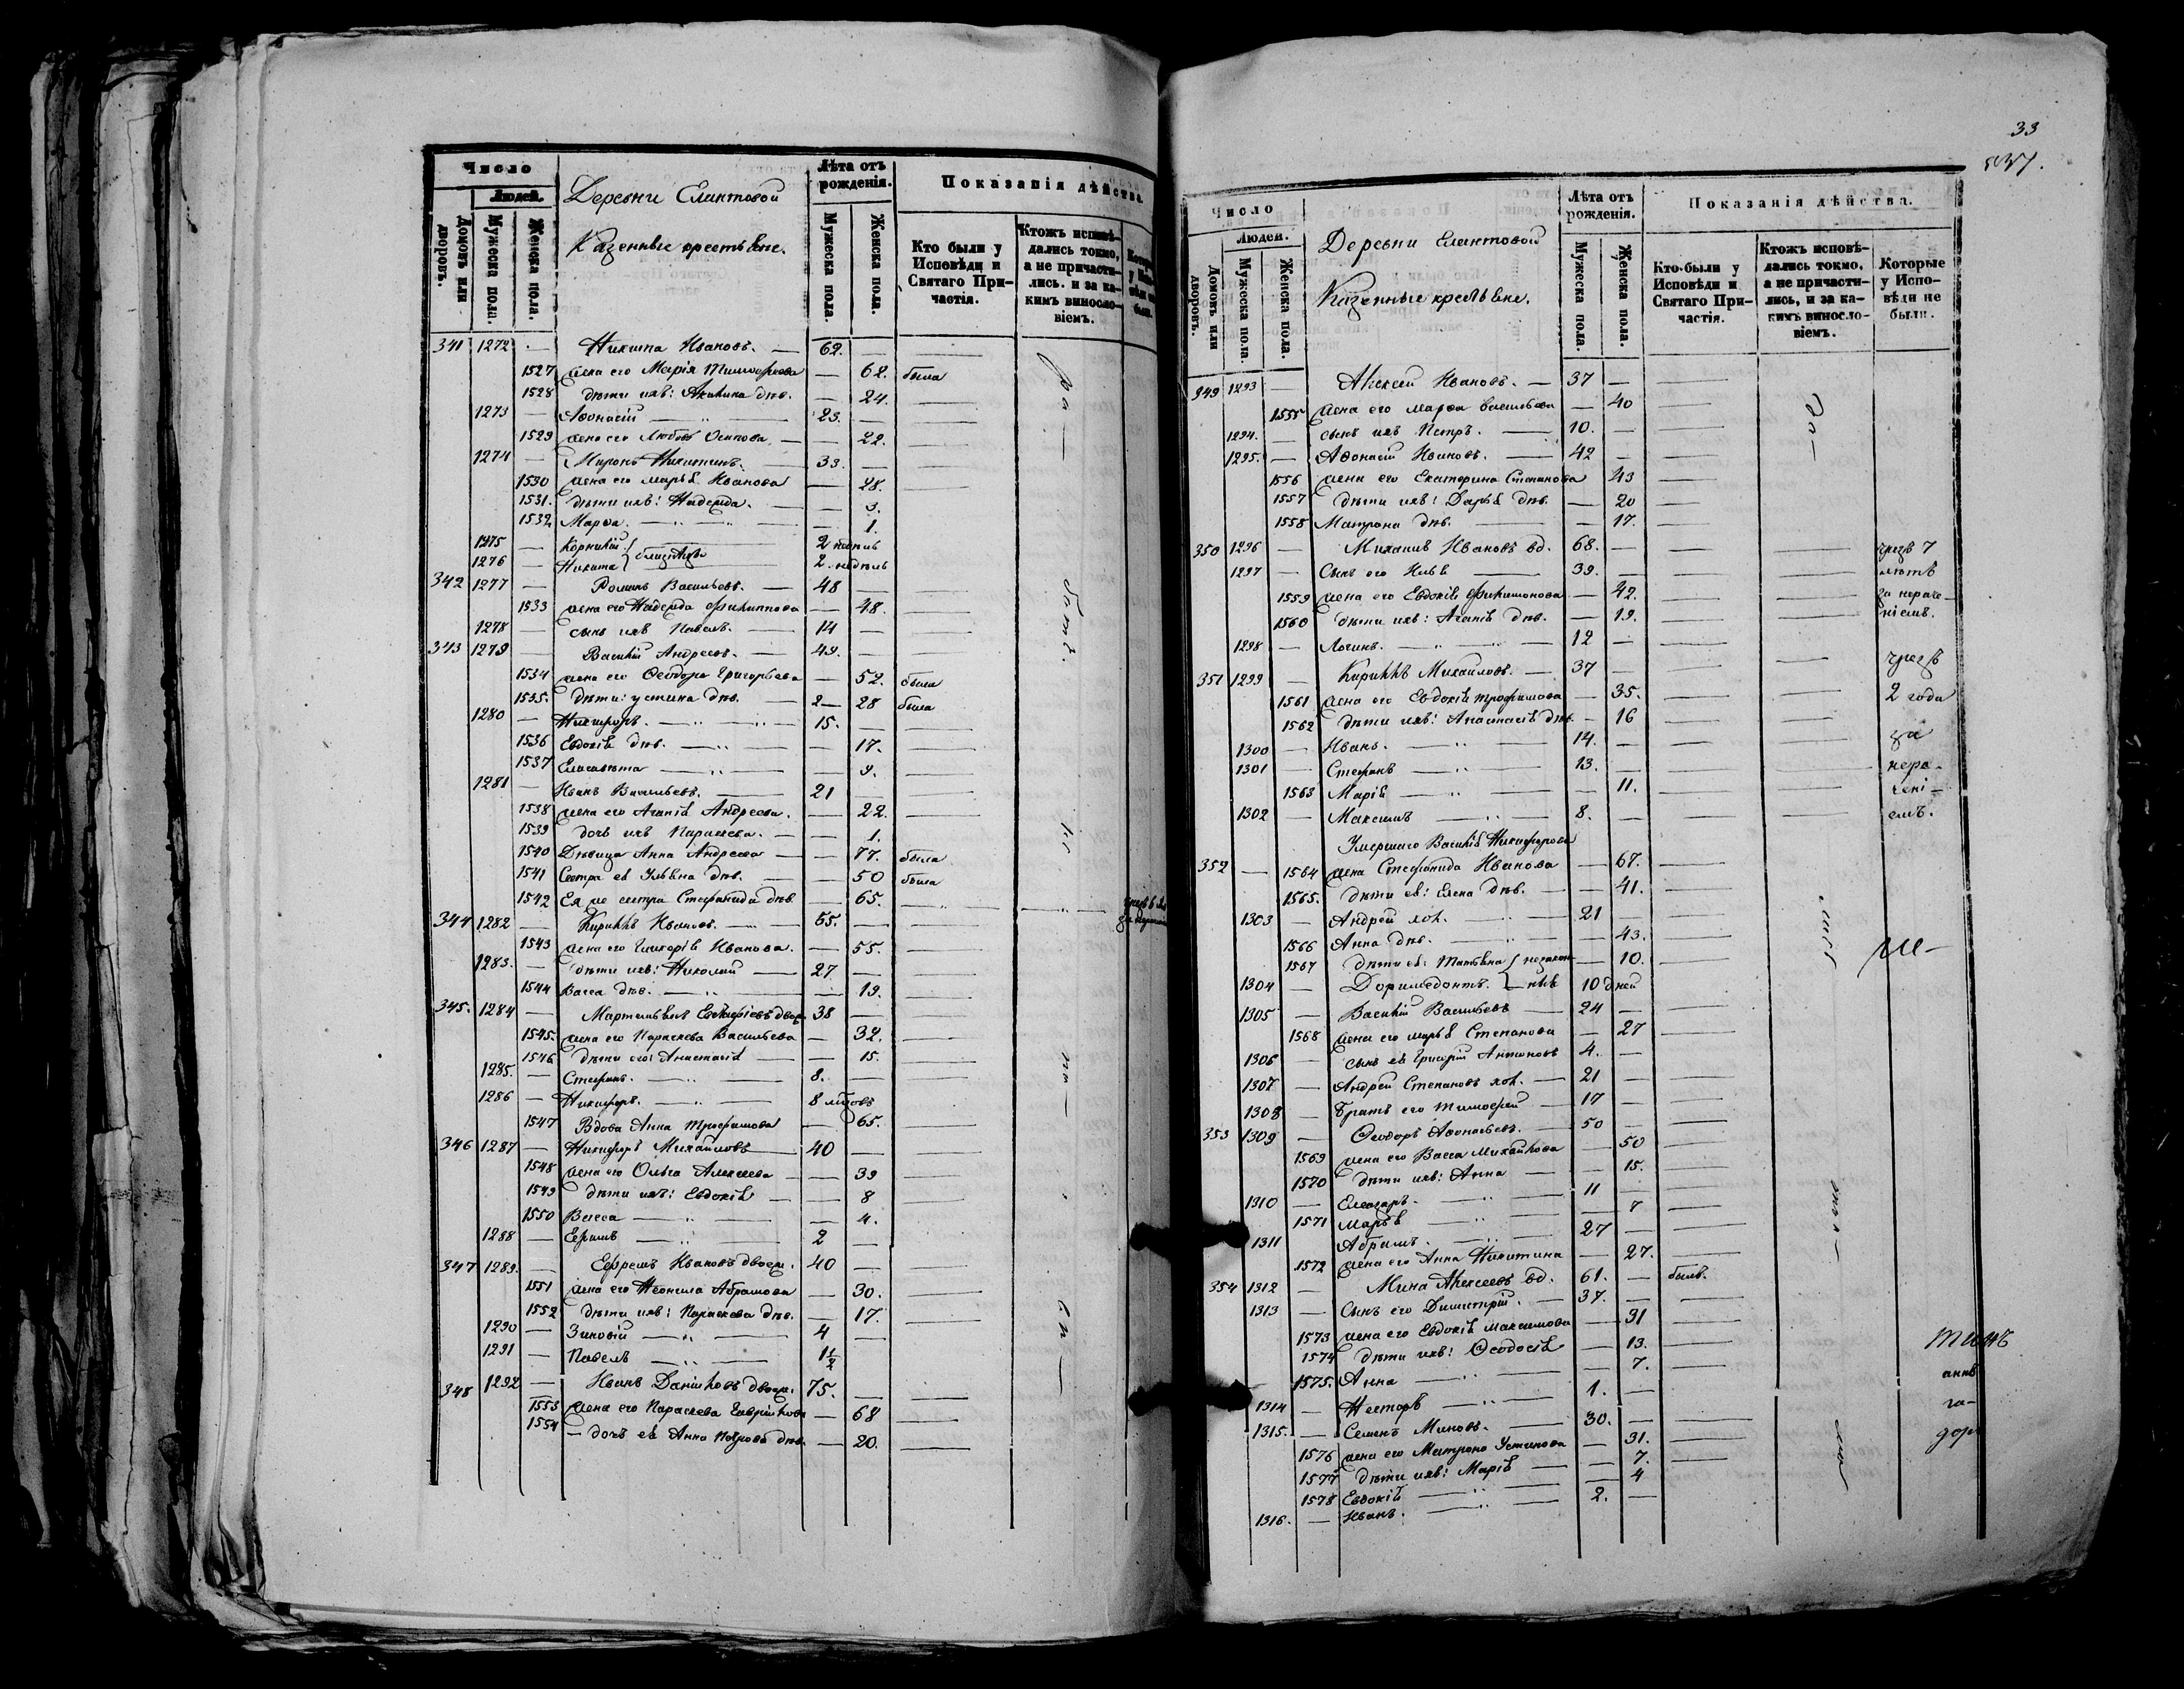 Число
Людей.
Домовъ или дворовъ.
Мужеска пола.
Женска пола.
Деревни Елантовой
Казенные крестьяне.
Лѣта отъ рожденія.
Мужеска пола.
Женска пола.
Показанія дѣйства.
Кто были у Исповѣди и Святаго Причастія.
Ктожъ исповѣдались токмо, а не причастились, и за какимъ винословіемъ.
341 1272 — Никита Ивановъ. — 62. —
1527 жена его Марія Тимофеева — 62. была
1528 дѣти ихъ: Акилина дѣв. — 24.
1273 — Афонасій — 23. —
1529 жена его Любовь Осипова — 22.
1274 — Миронъ Никитинъ. — 33. —
1530 жена его Марья Иванова — 28.
1531. дѣти ихъ: Надежда. — 3.
1532 Марѳа. — 1.
1275 — Корнилій близнецы 2 недѣль
1276 — Никита 2. недѣль
342 1277 — Романъ Васильевъ. — 48 —
1533 жена его Надежда Филиппова — 48.
1278 — сынъ ихъ Павелъ. — 14 —
343 1279 — Василій Андреевъ. — 49. —
1534 жена его Ѳеодора Григорьева — 52. была
1535. дѣти: Устина дѣв. 2— 28 была
1280 — Никифоръ. — 15. —
1536 Евдокія дѣв. — 17.
1537 Елисавета — 9.
1281 — Иванъ Васильевъ. — 21 —
1538 жена его Агапія Андреева. — 22.
1539 дочь ихъ Параскева. — 1.
1540 Дѣвица Анна Андреева — 77. была
1541 Сестра ея Ульяна дѣв. — 50 была
1542 Ея же сестра Стефанида дѣв. — 65.
344 1282 — Кириллъ Ивановъ. — 65. —
1543 жена его Гликерія Иванова. — 55.
1283. — дѣти ихъ: Николай — 27 —
1544 Васса дѣв. — 19.
345. 1284 — Мартемьянъ Евдокимовъ двор. 38 —
1545. жена его Параскева Васильева — 32.
1546 дѣти его: Анастасія — 15.
1285. — Стефанъ. — 8. —
1286 — Никифоръ. — 8 мѣсяцовъ
1547 Вдова Анна Трофимова — 65.
346 1287 — Никифоръ Михайловъ — 40 —
1548 жена его Ольга Алексеева — 39
1549 дѣти ихъ: Евдокія — 8
1550 Васса — 4.
1288 — Ефимъ — 2 —
347 1289. — Ефремъ Ивановъ двор. 40 —
1551 жена его Неонила Абрамова — 30.
1552 дѣти ихъ: Параскева дѣв. — 17.
1290 — Зиновій — 4 —
1291 — Павелъ — 1½
348 1292 — Иванъ Даниловъ двор. 75. —
1553 жена его Параскева Гаврилова — 68
1554 — дочь ея Анна Петрова дѣв. — 20.
33
537.
Число
Людей.
Домовъ или дворовъ.
Мужеска пола.
Женска пола.
Деревни Елантовой
Казенные крестьяне.
Лѣта отъ рожденія.
Мужеска пола.
Женска пола.
Показанія дѣйства.
Кто были у Исповѣди и Святаго Причастія.
Ктожъ исповѣдались токмо, а не причастились, и за какимъ винословіемъ.
Которые у Исповѣди не были.
349 1293 — Алексей Ивановъ. — 37 —
1555 жена его Марѳа Васильева — 40
1294. — сынъ ихъ Петръ. — 10. —
1295. — Афонасій Ивановъ. — 42 —
1556 жена его Екатерина Степанова 43
1557 дѣти ихъ: Дарья дѣв. — 20
1558 Матрона дѣв. — 17.
350 1296 — Михаилъ Ивановъ вд. 68. — чрезъ 7
1297 — Сынъ его Илья — 39. — лѣтъ
1559 жена его Евдокія Филимонова — 42. за нераче-
1560 дѣти ихъ: Агапія дѣв. — 19. ніемъ.
1298 — Логинъ. — 12 —
351 1299 — Кириллъ Михайловъ. — 37 — чрезъ
1561 жена его Евдокія Трофимова — 35. 2 года
1562 дѣти ихъ: Анастасія дѣв. — 16
1300 — Иванъ. — 14. — за
1301 — Стефанъ — 13. — нера-
1563 Марія — 11. чені-
1302 — Максимъ — 8. — емъ.
Умершаго Василія Никифорова
352 — 1564 жена Стефанида Иванова — 67.
1565. дѣти ея: Елена дѣв. — 41.
1303 — Андрей хол. — 21 —
1566 Анна дѣв. — 43.
1567 дѣти ея: Татьяна незакон- — 10.
1304 — Доримедонтъ. ныя 10 дней
1305 — Василій Васильевъ — 24 —
1568 жена его Марья Степанова — 27
1306 — сынъ ея Григорій Антоновъ 4. —
1307 — Андрей Степановъ хол. — 21 —
1308 — Братъ его Тимофей — 17 —
353 1309 — Ѳеодоръ Афонасьевъ. — 50 —
1569 жена его Васса Михайлова — 50
1570 дѣти ихъ: Анна — 15.
1310 — Елеазаръ. — 11 —
1571 Марья — 7
1311 Абрамъ. — 27 —
1572 жена его Анна Никитина — 27.
354 1312 — Мина Алексеевъ вд. 61. — былъ.
1313 — Сынъ его Димитрій. — 37. —
1573 жена его Евдокія Максимова — 31
1574 дѣти ихъ: Ѳеодосія — 13.
1575. Анна — 7.
1314 — Несторъ — 1. —
1315. — Семенъ Миновъ. — 30. —
1576 жена его Матрона Устинова — 31.
1577 дѣти ихъ: Марія — 7.
1578 Евдокія — 4
1316. — Иванъ. — 2. —